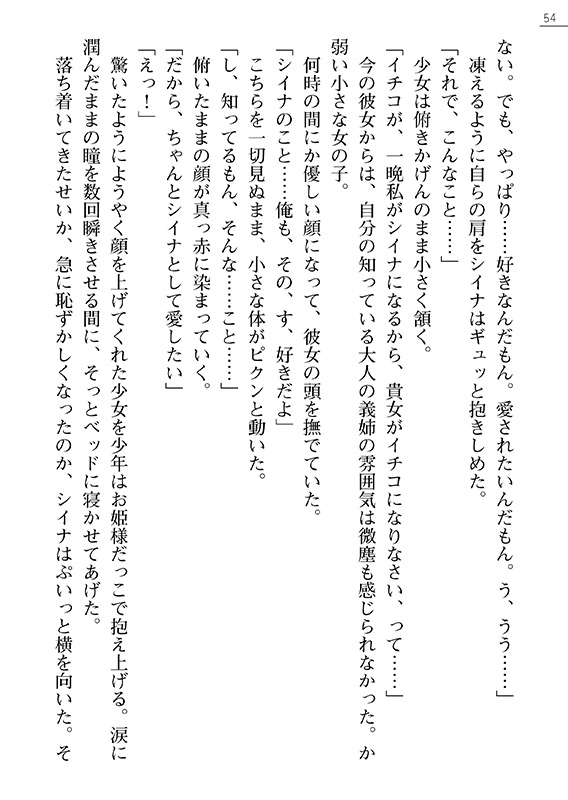 54
ない。でも、やっぱり……好きなんだもん。愛されたいんだもん。う、うう……」
凍えるように自らの肩をシイナはギュッと抱きしめた。
「それで、こんなこと……」
少女は俯きかげんのまま小さく頷く。
「イチコが、一晩私がシイナになるから、貴女がイチコになりなさい、って……」
今の彼女からは、自分の知っている大人の義姉の雰囲気は微塵も感じられなかった。か
弱い小さな女の子。
何時の間にか優しい顔になって、彼女の頭を撫でていた。
「シイナのこと……俺も、その、す、好きだよ」
こちらを一切見ぬまま、小さな体がピクンと動いた。
「し、知ってるもん、そんな……こと……」
俯いたままの顔が真っ赤に染まっていく。
「だから、ちゃんとシイナとして愛したい」
「えっ！」
驚いたようにようやく顔を上げてくれた少女を少年はお姫様だっこで抱え上げる。涙に
潤んだままの瞳を数回瞬きさせる間に、そっとベッドに寝かせてあげた。
落ち着いてきたせいか、急に恥ずかしくなったのか、シイナはぷいっと横を向いた。そ